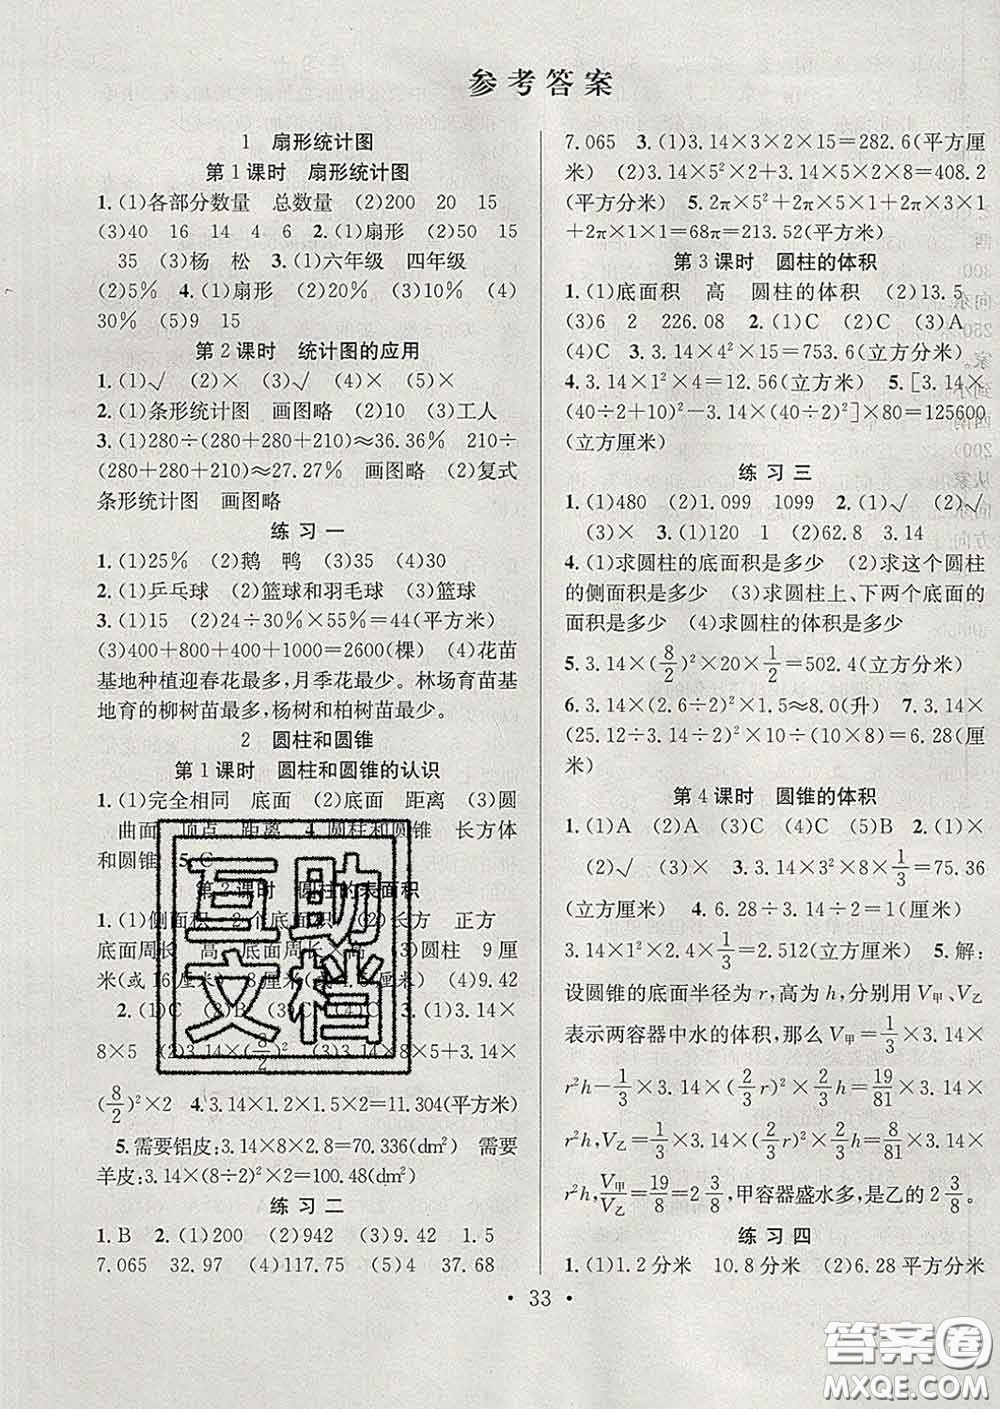 参考答案
1 扇形统计图
第1课时 扇形统计图
1.(1)各部分数量 总数量 (2)200 20 15
(3)40 16 14 4 6 2.(1)扇形 (2)50 15
35 (3)杨 松 3.(1)六年级 四年级
(2)5% 4.(1)扇形 (2)20% (3)10% (4)
30% (5)9 15
第2课时 统计图的应用
1.(1)√ (2)× (3)× (4)√ (5)×
2.(1)条形统计图 画图略 (2)10 (3)工人
3.(1)280÷(280+280+210)≈36.36% 210÷
(280+280+210)≈27.27% 画图略 (2)复式
条形统计图 画图略
练习一
1.(1)25% (2)鹅 鸭 (3)35 (4)30
2.(1)乒乓球 (2)篮球和羽毛球 (3)篮球
3.(1)15 (2)24÷30%×55%=44(平方米)
(3)400+800+400+1000=2600(棵) (4)花苗
基地种植迎春花最多,月季花最少。林场育苗基
地育的柳树苗最多,杨树和柏树苗最少。
2 圆柱和圆锥
第1课时 圆柱和圆锥的认识
1.(1)完全相同 底面 (2)底面 距离 (3)圆
曲面 顶点 距离 4.圆柱和圆锥 长方体
和圆锥 5.C
第2课时 圆柱的表面积
1.(1)侧面积 2个底面积 (2)长方 正方
底面周长 高 底面周长 高 (3)圆柱 9厘
米(或16厘米) 8厘米(或4.5厘米) (4)9.42
2.(1)C (2)C (3)C 3.(1)3.14×
8×5 (2)3.14×(8/2)² (3)3.14×8×5+3.14×
(8/2)²×2 4.3.14×1.2×1.5×2=11.304(平方米)
5.需要铝皮:3.14×8×2.8=70.336(dm²) 需要
羊皮:3.14×(8÷2)²×2=100.48(dm²)
练习二
1.B 2.(1)200 (2)942 (3)9.42 1.5
7.065 32.97 (4)117.75 (5)4 37.68
7.065 3.(1)3.14×3×2×15=282.6(平方厘
米) (2)3.14×5²×2+3.14×5×2×8=408.2
(平方分米) 5.2π×5²+2π×5×1+2π×3×1
+2π×1×1=68π=213.52(平方米)
第3课时 圆柱的体积
1.(1)底面积 高 圆柱的体积 (2)13.5
(3)6 2 226.08 2.(1)C (2)C (3)A
(4)C 3.3.14×4²×15=753.6(立方分米)
4.3.14×1²×4=12.56(立方米) 5.[3.14×
(40÷2+10)²-3.14×(40÷2)²]×80=125600
(立方厘米)
练习三
1.(1)480 (2)1.099 1099 2.(1)√ (2)√
(3)× 3.(1)120 1 (2)62.8 3.14
4.(1)求圆柱的底面积是多少 (2)求这个圆柱
的侧面积是多少 (3)求圆柱上、下两个底面的
面积是多少 (4)求圆柱的体积是多少
5.3.14×(8/2)²×20×1/2=502.4(立方分米)
6.3.14×(2.6÷2)²×1.5≈8.0(升) 7.3.14×
(25.12÷3.14÷2)²×2÷(4×4)=6.28(厘
米)
第4课时 圆锥的体积
1.(1)A (2)A (3)C (4)C (5)B 2.(1)×
(2)√ (3)× 3.3.14×3²×8×1/3=75.36
(立方厘米) 4.6.28÷3.14÷2=1(厘米)
3.14×1²×2.4×1/3=2.512(立方厘米) 5.解:
设圆锥的底面半径为r,高为h,分别用V甲、V乙
表示两容器中水的体积,那么V甲=1/3×3.14×
r²h-1/3×3.14×(2/3r)²×2/3h=19/81×3.14×
r²h,V乙=1/3×3.14×(2/3r)²×2/3h=8/81×3.14
×r²h,V甲/V乙=19/8=2 3/8,甲容器盛水多,是乙的2 3/8。
练习四
1.(1)1.2分米 10.8分米 (2)6.28平方分米
·33·
互助文档
答案圈
MXQE.COM